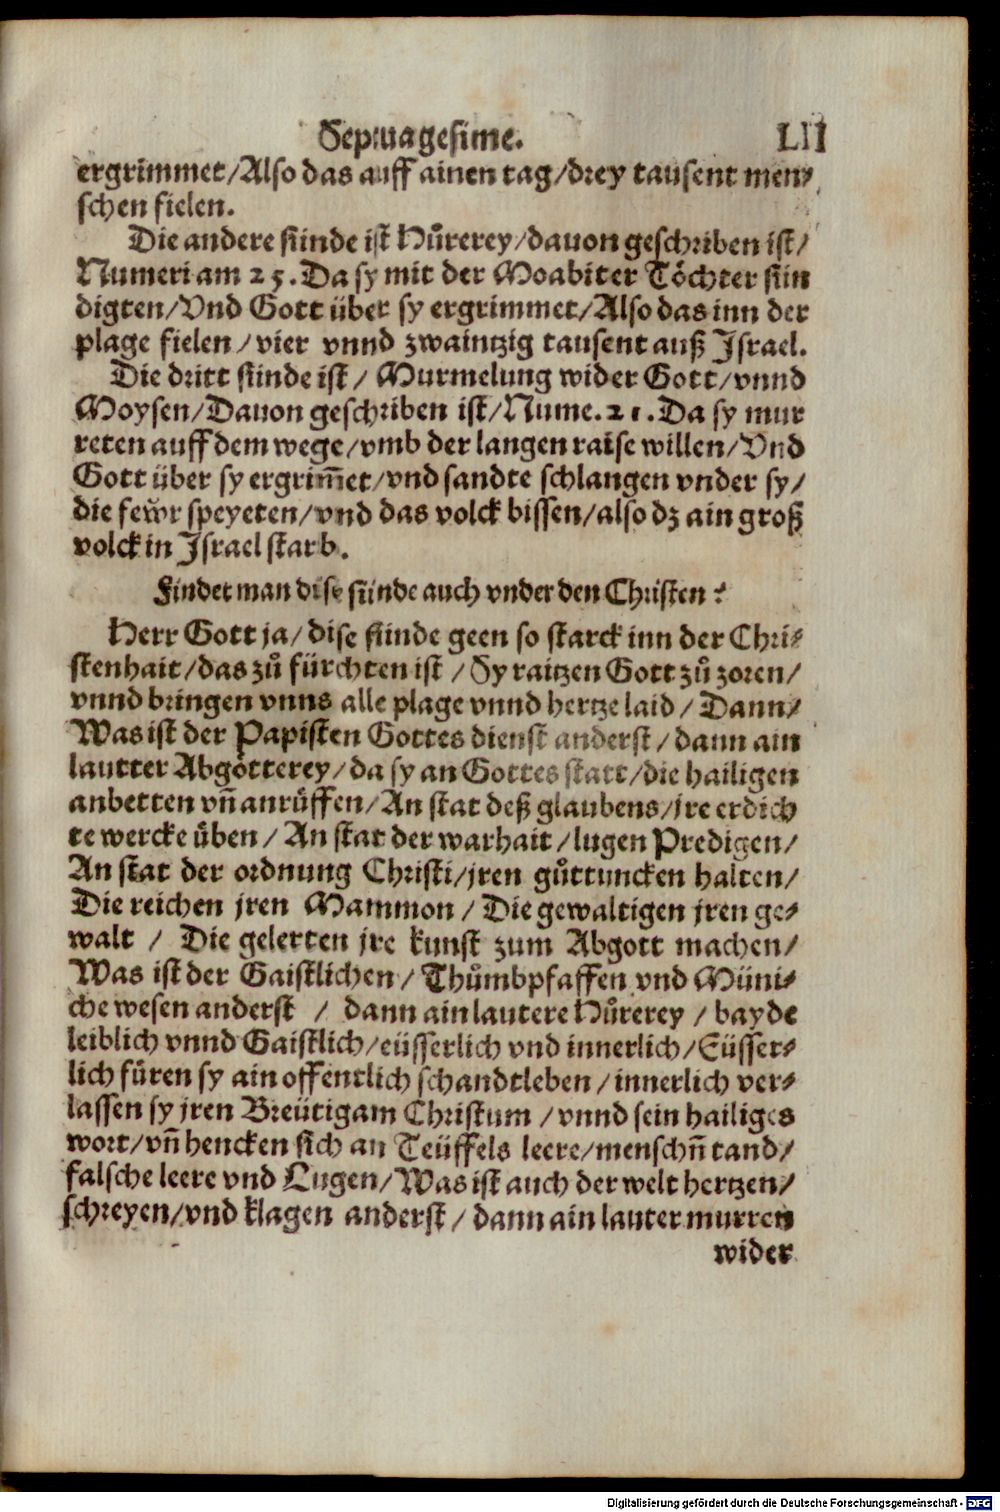 Septuagesime. LII
ergrimmet/Also das auff ainen tag/drey tausent men⸗
schen fielen.
Die andere sünde ist Hůrerey/dauon geschriben ist/
Numeri am 25. Da sy mit der Moabiter Töchter sün
digten/Vnd Gott über sy ergrimmet/Also das inn der
plage fielen/vier vnnd zwaintzig tausent auß Israel.
Die dritt sünde ist/ Murmelung wider Gott/vnnd
Moysen/Dauon geschriben ist/Nume. 21. Da sy mur
reten auff dem wege/vmb der langen raise willen/Vnd
Gott über sy ergrim̄et/vnd sandte schlangen vnder sy/
die fewr speyeten/vnd das volck bissen/also dz ain groß
volck in Israel starb.
Findet man dise sünde auch vnder den Christen?
Herr Gott ja/dise sünde geen so starck inn der Chri⸗
stenhait/das zů fürchten ist/Sy raitzen Gott zů zoren/
vnnd bringen vnns alle plage vnnd hertze laid/Dann/
Was ist der Papisten Gottes dienst anderst/dann ain
lautter Abgötterey/da sy an Gottes statt/die hailigen
anbetten vn̄ anrüffen/An stat deß glaubens/jre erdich
te wercke üben/An stat der warhait/lugen Predigen/
An stat der ordnung Christi/jren gůttuncken halten/
Die reichen jren Mammon/Die gewaltigen jren ge⸗
walt/ Die gelerten jre kunst zum Abgott machen/
Was ist der Gaistlichen/Thůmbpfaffen vnd Müni⸗
che wesen anderst / dann ain lautere Hůrerey/bayde
leiblich vnnd Gaistlich/eüsserlich vnd innerlich/Eüsser⸗
lich füren sy ain offentlich schandtleben/innerlich ver⸗
lassen sy jren Breütigam Christum/vnnd sein hailiges
wort/vn̄ hencken sich an Teüffels leere/menschn̄ tand/
falsche leere vnd Lugen/Was ist auch der welt hertzen/
schreyen/vnd klagen anderst/dann ain lauter murren
wider
Digitalisierung gefördert durch die Deutsche Forschungsgemeinschaft - DFG